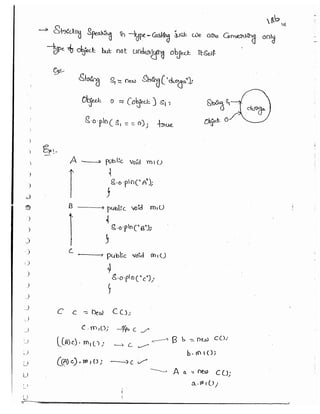 → Strictly Speaking in type-Casting just we are Converting only
type of object but not underlying object itself
Ex:-
String S1 = new String("durga");
Object o = (Object) S1;
String S1 → durga
Object o →
S.o.pln(S1 == o); true
Ex:-
A → public void m1()
{
S.o.pln("A");
}
B → public void m1()
{
S.o.pln("B");
}
C → public void m1()
{
S.o.pln("C");
}
C c = new C();
c.m1(); → C ✓
((B)c).m1(); → C ✓ → B b = new C();
b.m1();
((A)c).m1(); → C ✓
→ A a = new C();
a.m1();